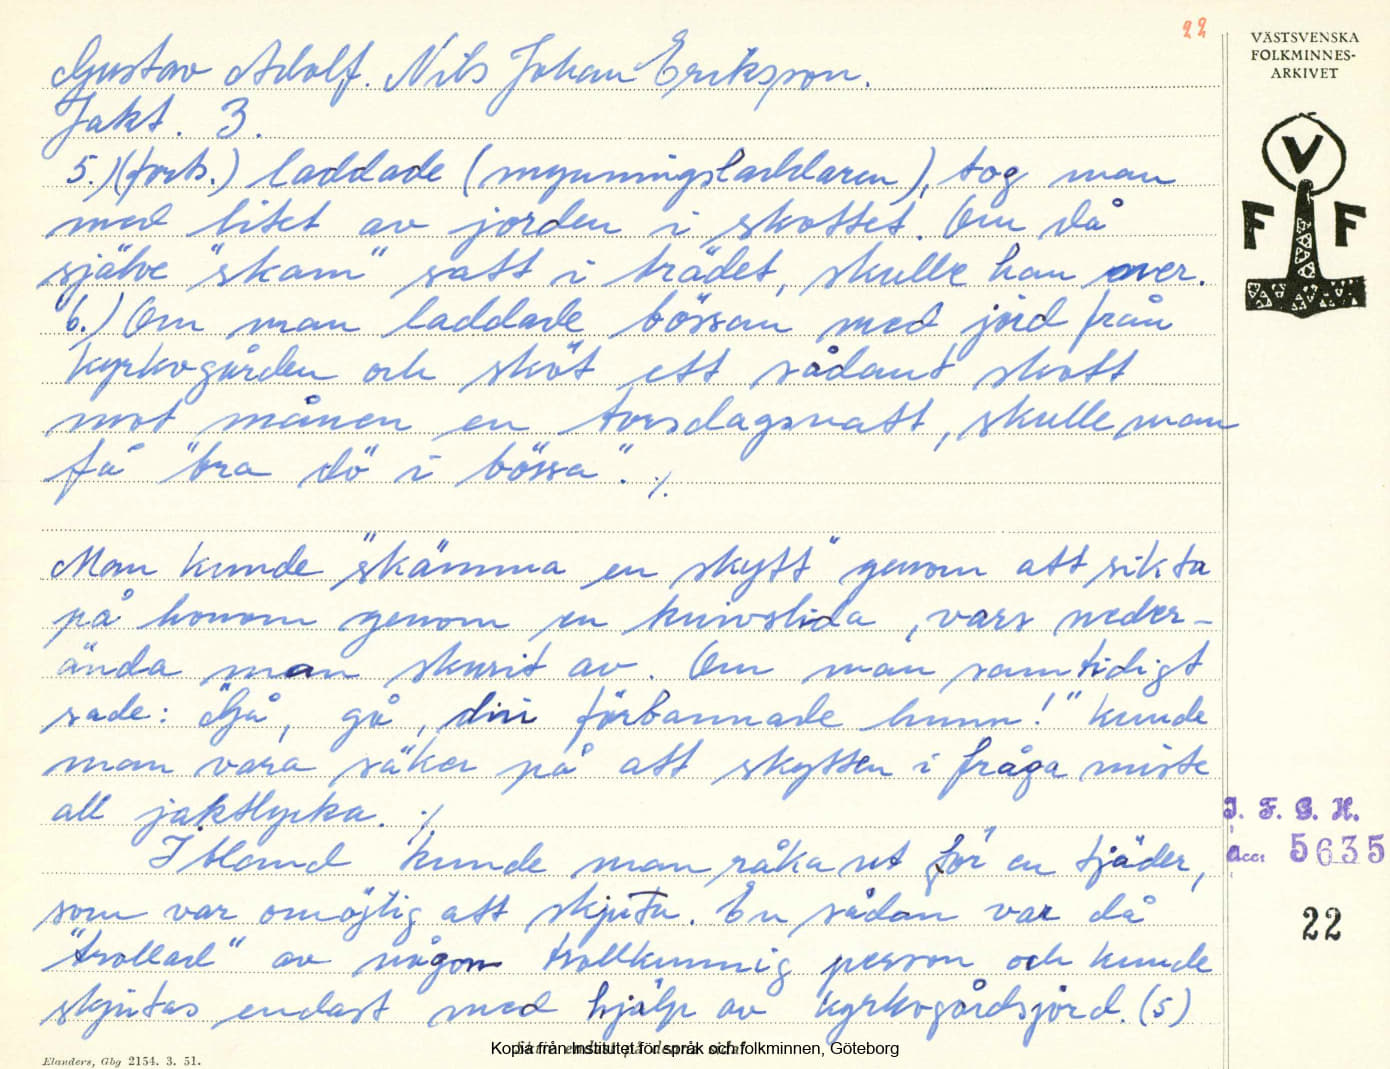 22
Gustav Adolf. Nils Johan Erikson.
Jakt. 3.
5.) (forts.) laddade (mynningsladdaren), tog man
med litet av jorden i skottet. Om då
själve "skam" satt i trädet, skulle han ner.
6.) Om man laddade bössan med jord från
kyrkogården och sköt ett sådant skott
mot månen en torsdagsnatt, skulle man
få "bra dö i bössa". ./.
Man kunde "skämma en skytt" genom att sikta
på honom genom en knivslida, vars neder-
ända man skurit av. Om man samtidigt
sade: "Gå, gå, din förbannade hunn!" kunde
man vara säker på att skytten i fråga miste
all jaktlycka. ./.
Ibland kunde man råka ut för en tjäder,
som var omöjlig att skjuta. En sådan var då
"trollad" av någon trollkunnig person och kunde
skjutas endast med hjälp av kyrkogårdsjord. (5)
VÄSTSVENSKA
FOLKMINNES-
ARKIVET
V
F F
I. F. G. H.
acc: 5635
22
Elanders, Gbg 2154. 3. 51.
Kopia från Institutet för språk och folkminnen, Göteborg